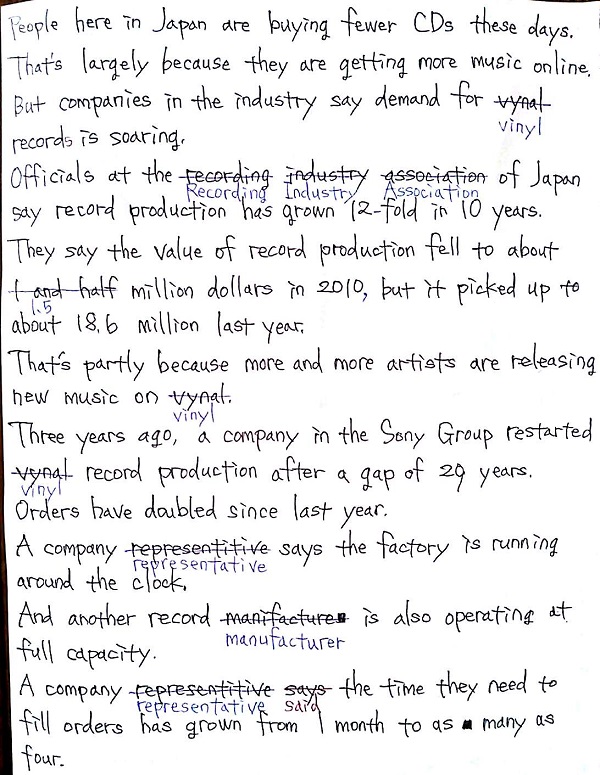 People here in Japan are buying fewer CDs these days.
That's largely because they are getting more music online.
But companies in the industry say demand for vynal
vinyl
records is soaring.
Officials at the recording industry association of Japan
Recording Industry Association
say record production has grown 12-fold in 10 years.
They say the value of record production fell to about
1 and half million dollars in 2010, but it picked up to
1.5
about 18.6 million last year.
That's partly because more and more artists are releasing
new music on vynal.
vinyl
Three years ago, a company in the Sony Group restarted
vynal record production after a gap of 29 years.
vinyl
Orders have doubled since last year.
A company representitive says the factory is running
representative
around the clock.
And another record manifacture is also operating at
manufacturer
full capacity.
A company representitive says the time they need to
representative said
fill orders has grown from 1 month to as many as
four.